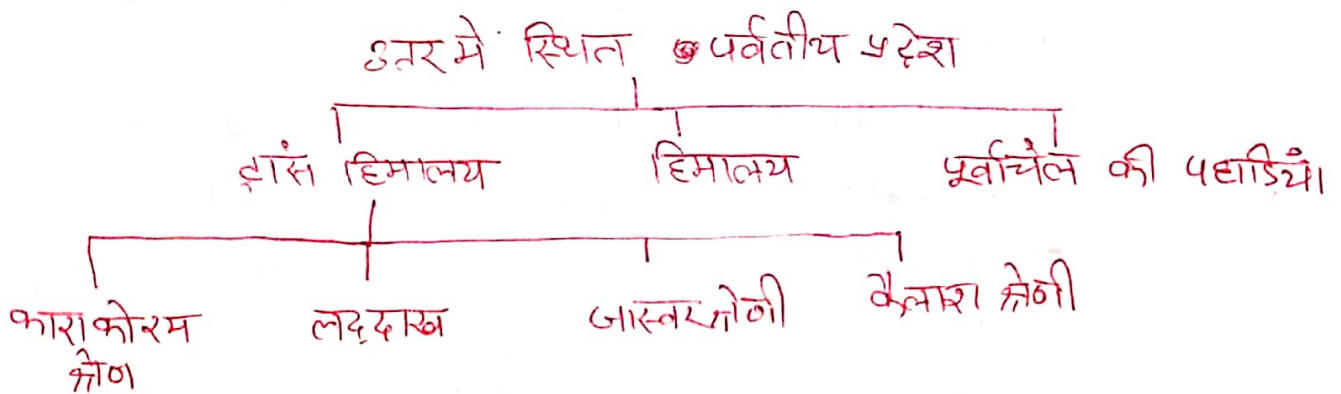 उतर में स्थित पर्वतीय प्रदेश
ट्रांस हिमालय हिमालय पूर्वाचंल की पहाडियां
काराकोरम लद्दाख जास्कर श्रेणी कैलाश श्रेणी
श्रेण